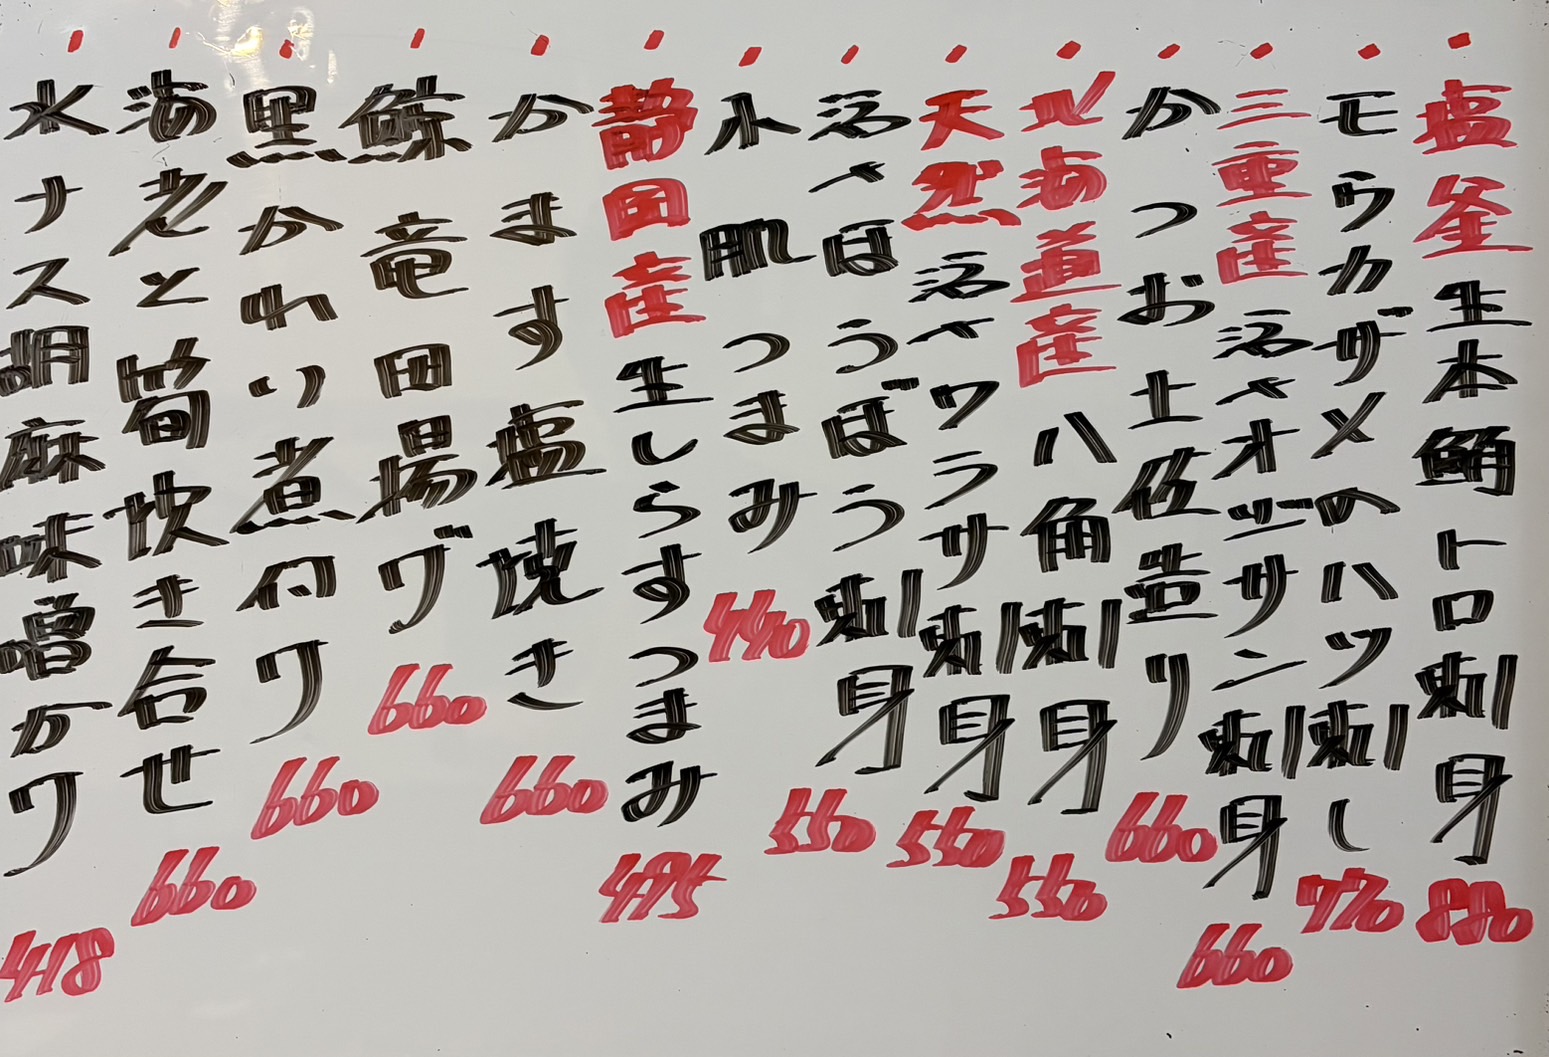 塩釜生本鮪トロ刺身 880
モウカザメのハツ刺し 770
三重産活〆オジサン刺身 660
かつお土佐造り 660
北海道産八角刺身 550
天然活〆ワラサ刺身 550
活〆ほうぼう刺身 550
小肌つまみ 440
静岡産生しらすつまみ 495
かます塩焼き 660
鯨竜田揚ゲ 660
黒かれい煮付ケ 660
海老と筍炊き合せ 660
水ナス胡麻味噌かケ 418